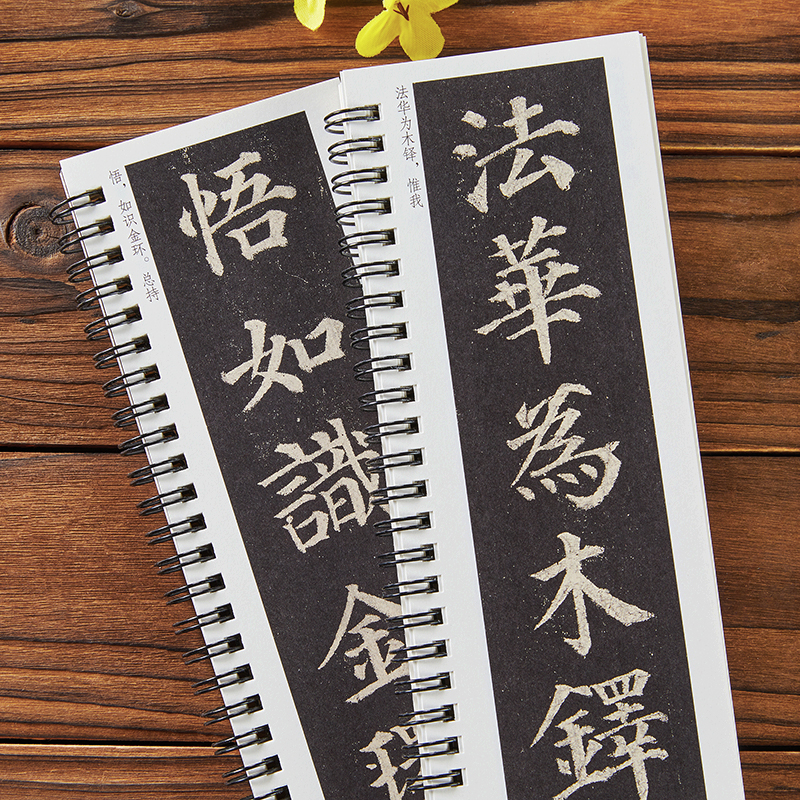 悟，如识金环。总持
悟如識金環
法华为木铎，惟我
法華為木鐸